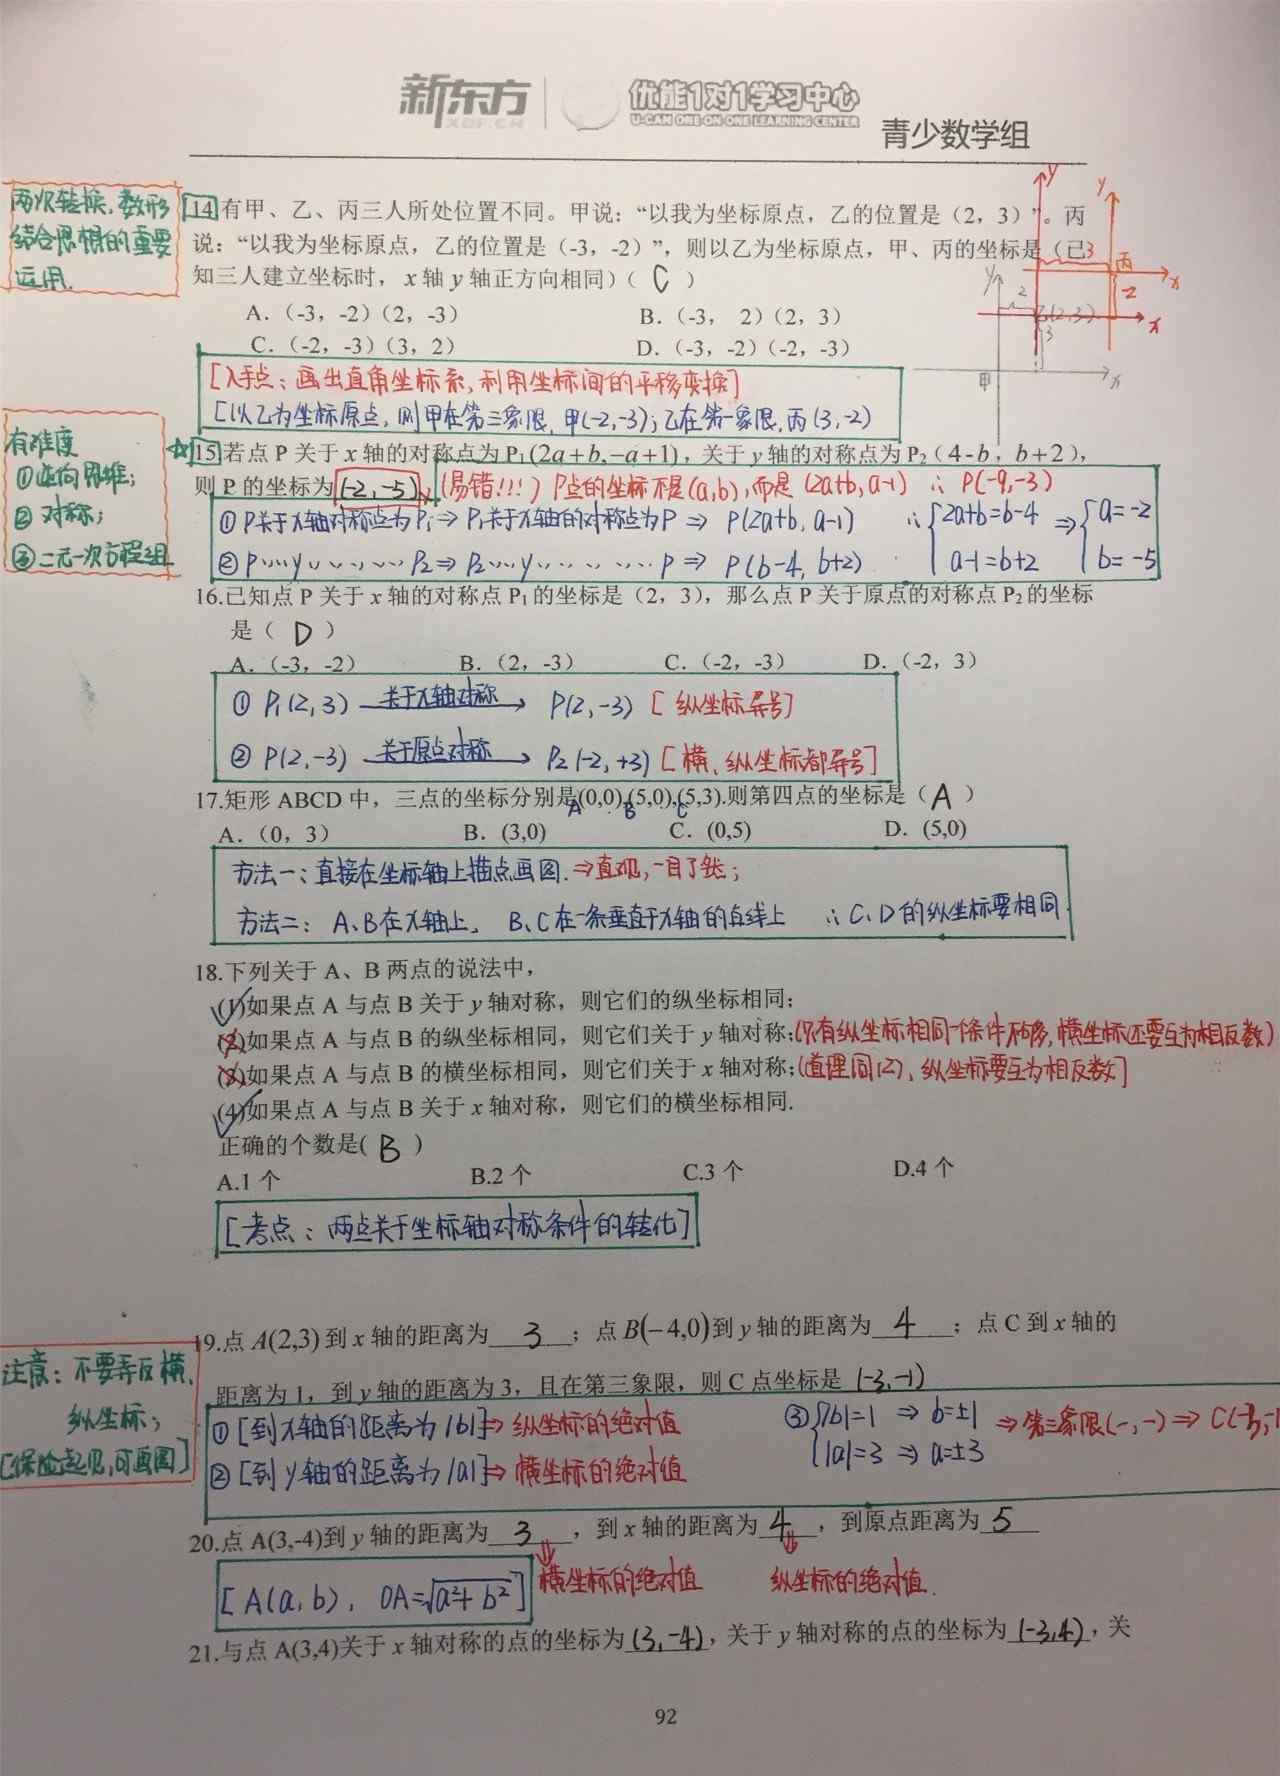 新东方
XDF.CN
优能1对1学习中心
U-CAN ONE ON ONE LEARNING CENTER
青少数学组
两次转换,数形
结合思想的重要
运用.
14 有甲、乙、丙三人所处位置不同。甲说：“以我为坐标原点，乙的位置是（2，3）”。丙
说：“以我为坐标原点，乙的位置是（-3，-2）”，则以乙为坐标原点，甲、丙的坐标是（已
知三人建立坐标时， x 轴 y 轴正方向相同）（ C ）
A.（-3，-2）（2，-3）
B.（-3， 2）（2，3）
C.（-2，-3）（3，2）
D.（-3，-2）（-2，-3）
y
y
3
丙
x
-2
y
2
乙(2,3)
x
3
甲
x
[入手点：画出直角坐标系,利用坐标间的平移变换]
[以乙为坐标原点,则甲在第三象限,甲(-2,-3);乙在第一象限,丙(3,-2)
有难度
①逆向思维;
②对称;
③二元一次方程组
☆15 若点 P 关于 x 轴的对称点为 P₁(2a+b,-a+1)，关于 y 轴的对称点为 P₂（4-b，b+2），
则 P 的坐标为 (-2,-5) x (易错!!!) P点的坐标不是(a,b),而是(2a+b,a-1) ∴ P(-9,-3)
①P关于x轴对称点为P₁⇒P₁关于x轴的对称点为P ⇒ P(2a+b, a-1) ∴ { 2a+b=b-4 ⇒ { a=-2
②P……y……P₂⇒P₂…y………P ⇒ P(b-4, b+2) a-1=b+2 b=-5
16.已知点 P 关于 x 轴的对称点 P₁的坐标是（2，3），那么点 P 关于原点的对称点 P₂的坐标
是（ D ）
A.（-3，-2）
B.（2，-3）
C.（-2，-3）
D.（-2，3）
① P₁(2,3) 关于x轴对称→ P(2,-3) [纵坐标异号]
② P(2,-3) 关于原点对称→ P₂(-2,+3) [横、纵坐标都异号]
17.矩形 ABCD 中，三点的坐标分别是(0,0),(5,0),(5,3).则第四点的坐标是（ A ）
A B C
A.（0，3）
B. (3,0)
C. (0,5)
D. (5,0)
方法一:直接在坐标轴上描点画图.⇒直观,一目了然;
方法二: A、B在x轴上, B、C在一条垂直于x轴的直线上 ∴C、D的纵坐标要相同.
18.下列关于 A、B 两点的说法中，
(1)如果点 A 与点 B 关于 y 轴对称，则它们的纵坐标相同；
(2)如果点 A 与点 B 的纵坐标相同，则它们关于 y 轴对称；(只有纵坐标相同一个条件不够,横坐标还要互为相反数)
(3)如果点 A 与点 B 的横坐标相同，则它们关于 x 轴对称；(道理同(2)、纵坐标要互为相反数]
(4)如果点 A 与点 B 关于 x 轴对称，则它们的横坐标相同.
正确的个数是( B )
A.1 个
B.2 个
C.3 个
D.4 个
[考点：两点关于坐标轴对称条件的转化]
注意：不要弄反横、
纵坐标;
[保险起见,可画图]
19.点 A(2,3) 到 x 轴的距离为 3 ；点 B(−4,0)到 y 轴的距离为 4 ；点 C 到 x 轴的
距离为 1，到 y 轴的距离为 3，且在第三象限，则 C 点坐标是 (-3,-1)
①[到x轴的距离为|b|]⇒纵坐标的绝对值
②[到y轴的距离为|a|]⇒横坐标的绝对值
③{ |b|=1 ⇒ b=±1 ⇒第三象限(-,-)⇒ C(-3,-1
|a|=3 ⇒ a=±3
20.点 A(3,-4)到 y 轴的距离为 3 ，到 x 轴的距离为 4 ，到原点距离为 5
[A(a,b), OA=√a²+b²]
横坐标的绝对值
纵坐标的绝对值.
21.与点 A(3,4)关于 x 轴对称的点的坐标为 (3,-4) ，关于 y 轴对称的点的坐标为 (-3,4) ，关
92